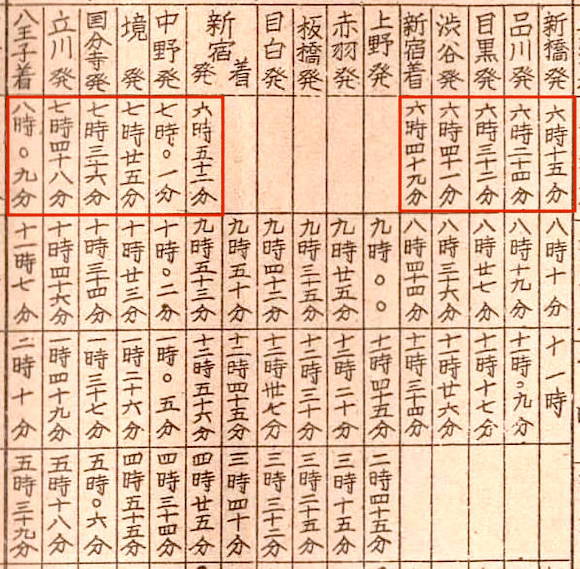 新橋発
品川発
目黒発
渋谷発
新宿着
上野発
赤羽発
板橋発
目白発
新宿着
発
中野発
境発
国分寺発
立川発
八王子着
六時十五分
六時二十四分
六時三十二分
六時四十一分
六時四十九分
六時五十二分
七時〇一分
七時廿五分
七時三十六分
七時四十八分
八時〇九分
八時十分
八時十九分
八時廿七分
八時三十六分
八時四十四分
九時〇〇
九時廿五分
九時三十五分
九時四十二分
九時五十分
九時五十三分
十時〇二分
十時廿三分
十時三十四分
十時四十六分
十一時七分
十一時
十一時〇九分
十一時十七分
十一時廿六分
十一時三十四分
十一時四十五分
十二時二十分
十二時三十分
十二時卅七分
十二時四十五分
十二時五十六分
一時〇五分
一時二十六分
一時三十七分
一時四十九分
二時十分
二時四十五分
三時十五分
三時二十五分
三時三十二分
三時四十分
四時廿五分
四時三十四分
四時五十五分
五時〇六分
五時十八分
五時三十九分